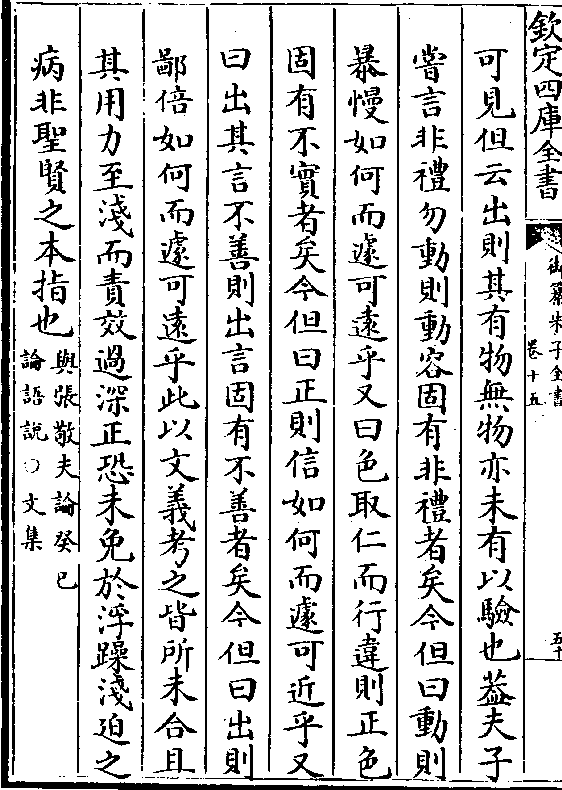 欽定四庫全書
御纂朱子全書
卷十五
五十
可見但云出則其有物無物亦未有以驗也葢夫子
嘗言非禮勿動則動容固有非禮者矣今但曰動則
暴慢如何而遽可遠乎又曰色取仁而行違則正色
固有不實者矣今但曰正則信如何而遽可近乎又
曰出其言不善則出言固有不善者矣今但曰出則
鄙倍如何而遽可遠乎此以文義考之皆所未合且
其用力至淺而責效過深正恐未免於浮躁淺迫之
病非聖賢之本指也
與張敬夫論癸巳
論語説○文集